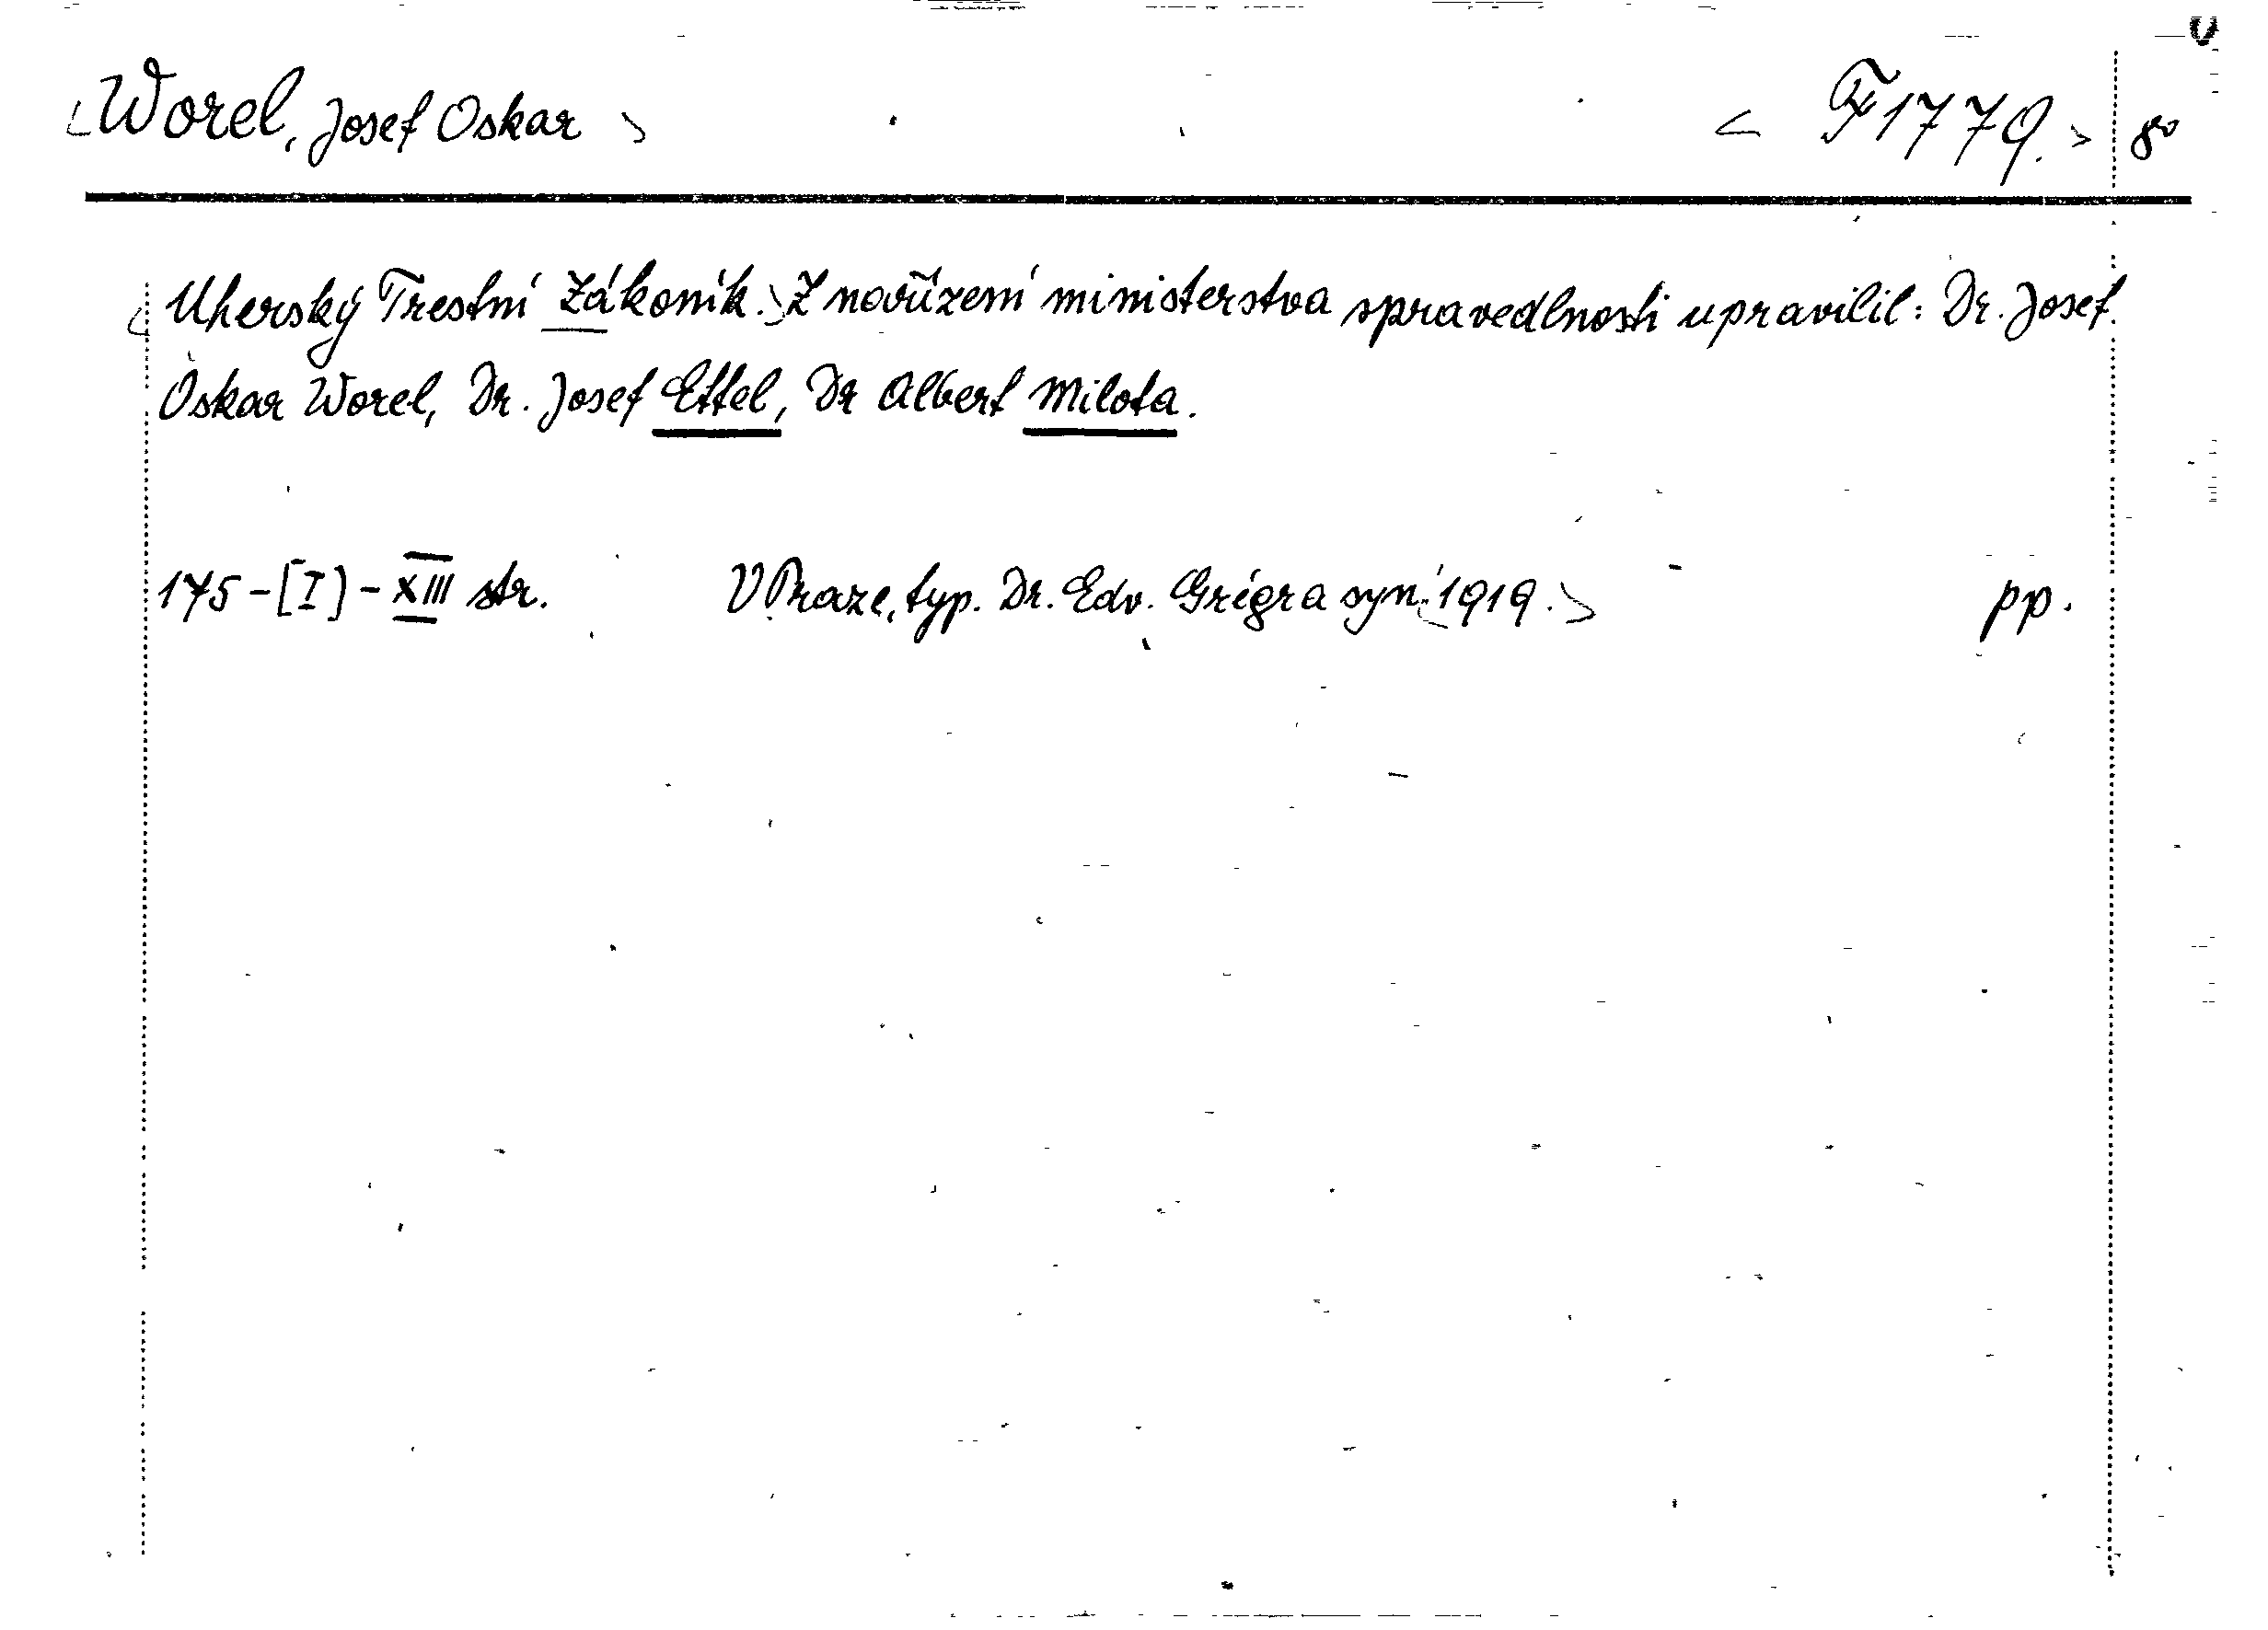 <Worel, Josef Oskar> <F 1779.> 8°
<Uherský Trestní Zákoník.> Z nařízení ministerstva spravedlnosti upravilil: Dr. Josef
Oskar Worel, Dr. Josef Ettel, Dr Albert Milota.
175-[I]-XIII str. V Praze, typ. Dr. Edv. Grégra syn. <1919.> pp.